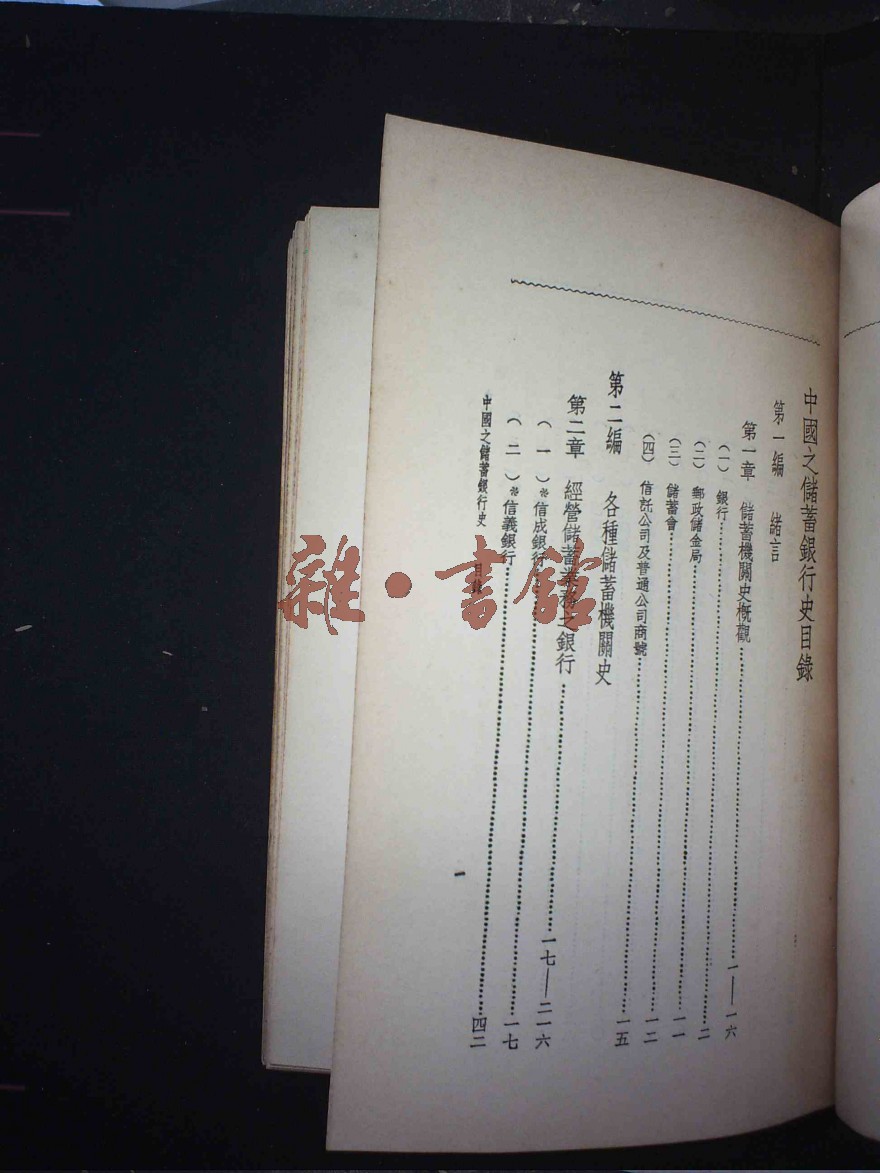 中國之儲蓄銀行史目錄
第一編 緒言
第一章 儲蓄機關史概觀……一——一六
(一)銀行……二
(二)郵政儲金局……一一
(三)儲蓄會……一二
(四)信託公司及普通公司商號……一五
第二編 各種儲蓄機關史
第二章 經營儲蓄業務之銀行……一七——二一六
(一)※信成銀行……一七
(二)※信義銀行……四二
中國之儲蓄銀行史 目錄
一
雜·書館